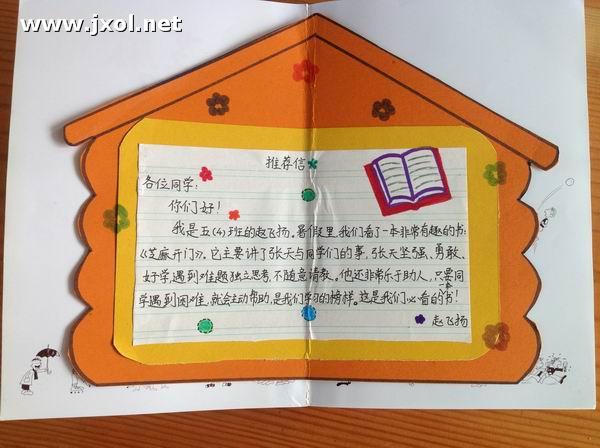 www.jxol.net
推荐信
各位同学：
你们好！
我是五(4)班的赵飞扬。暑假里，我们看了一本非常有趣的书：
《芝麻开门》。它主要讲了张天与同学们的事，张天坚强、勇敢、
好学，遇到难题独立思考，不随意请教。他还非常乐于助人，只要同
学遇到困难，就会主动帮助，是我们学习的榜样。这是我们必看的一本书！
赵飞扬